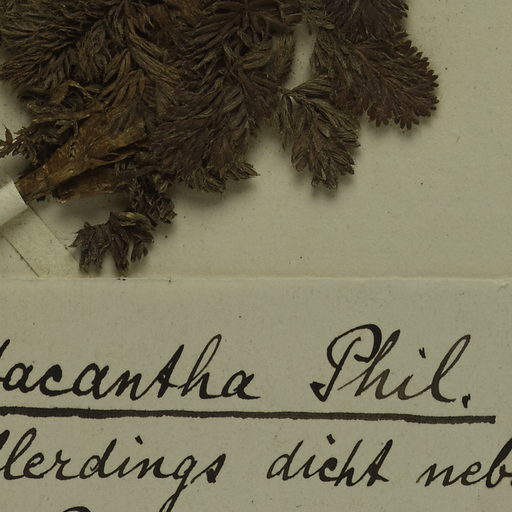 acantha Phil.
llerdings dicht neb